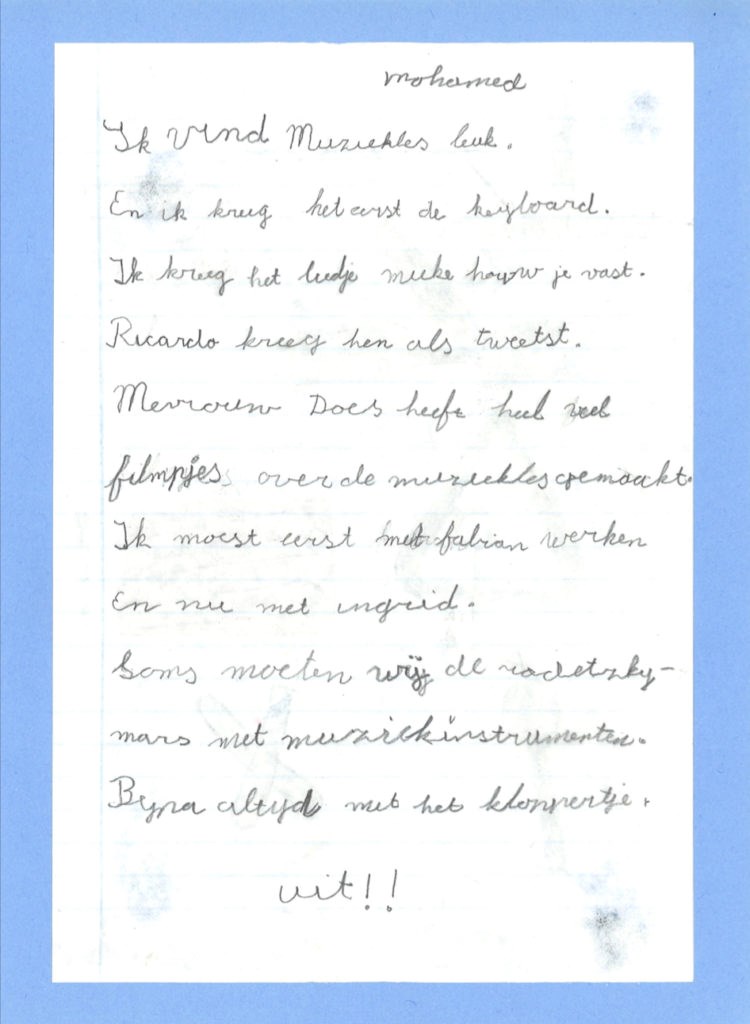 mohamed
Ik vind Muziekles leuk.
En ik kreeg het eerst de keyboard.
Ik kreeg het liedje mieke houw je vast.
Ricardo kreeg hen als tweetst.
Mevrouw Does heeft heel veel
filmpjes over de muziekles gemaakt.
Ik moest eerst met fabian werken
En nu met ingrid.
Soms moeten wij de radetzky-
mars met muziekinstrumenten.
Byna altyd met het kloppertje.
uit!!